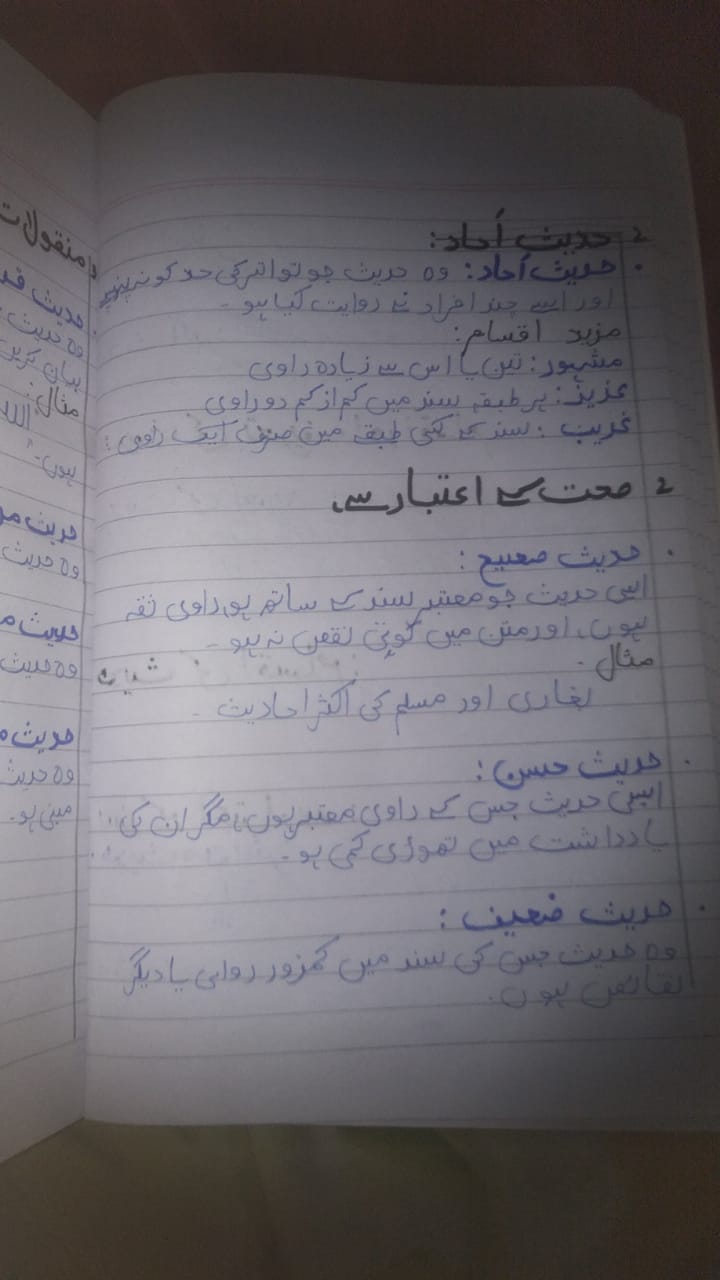 2 حدیث اُحاد:
• حدیث اُحاد: وہ حدیث جو تواتر کی حد کو نہ پہنچے
اور اسے چند افراد نے روایت کیا ہو۔
مزید اقسام:
مشہور: تین یا اس سے زیادہ راوی
عزیز: ہر طبقہ سند میں کم از کم دو راوی
غریب: سند کے کسی طبقہ میں صرف ایک راوی:
2 صحت کے اعتبار سے
• حدیث صحیح:
ایسی حدیث جو معتبر سند کے ساتھ ہو، راوی ثقہ
ہوں، اور متن میں کوئی نقص نہ ہو۔
مثال۔
بخاری اور مسلم کی اکثر احادیث۔
• حدیث حسن:
ایسی حدیث جس کے راوی معتبر ہوں، مگر ان کی
یادداشت میں تھوڑی کمی ہو۔
• حدیث ضعیف:
وہ حدیث جس کی سند میں کمزور روای یا دیگر
نقائص ہوں۔
منقولات
حدیث قد
وہ حدیث
بیان کریں
مثال:
اللہ
ہوں۔"
حدیث مر
وہ حدیث
حدیث م
وہ حدیث
حدیث م
وہ حدیث
مبنی ہو۔